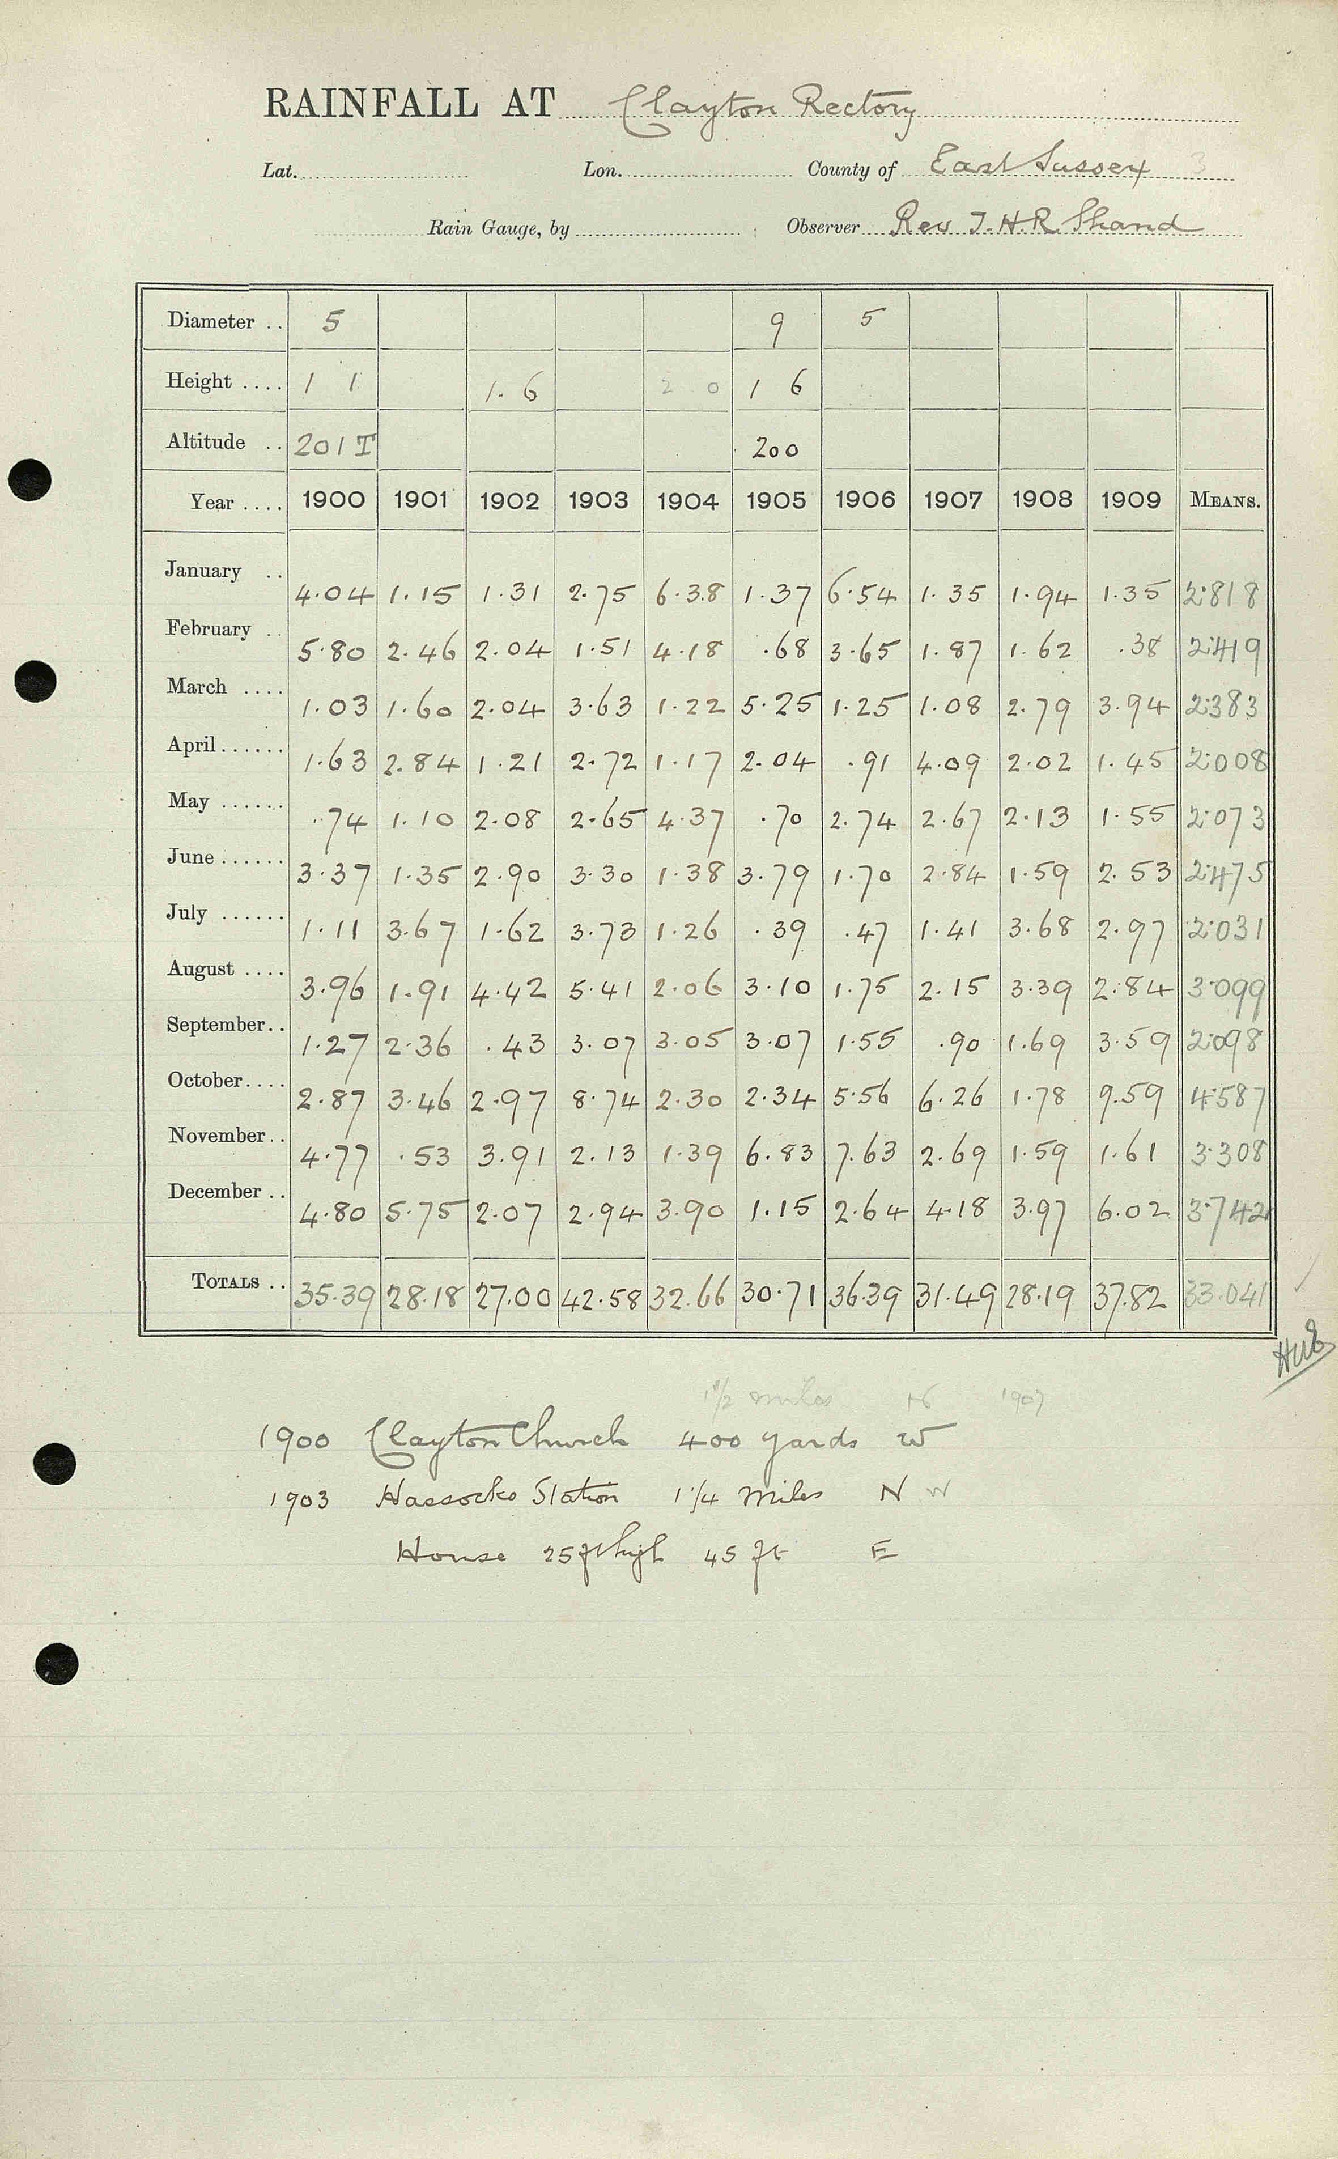 RAINFALL AT Clayton Rectory
Lat. Lon. County of East Sussex 3
Rain Gauge, by Observer Rev J.H.R. Shand
Diameter .. 5 9 5
Height .... 1 1 1.6 2 0 1 6
Altitude .. 201 T 200
Year .... 1900 1901 1902 1903 1904 1905 1906 1907 1908 1909 MEANS.
January .. 4.04 1.15 1.31 2.75 6.38 1.37 6.54 1.35 1.94 1.35 2.818
February .. 5.80 2.46 2.04 1.51 4.18 .68 3.65 1.87 1.62 .38 2.419
March .... 1.03 1.60 2.04 3.63 1.22 5.25 1.25 1.08 2.79 3.94 2.383
April ...... 1.63 2.84 1.21 2.72 1.17 2.04 .91 4.09 2.02 1.45 2.008
May ...... .74 1.10 2.08 2.65 4.37 .70 2.74 2.67 2.13 1.55 2.073
June ...... 3.37 1.35 2.90 3.30 1.38 3.79 1.70 2.84 1.59 2.53 2.475
July ...... 1.11 3.67 1.62 3.73 1.26 .39 .47 1.41 3.68 2.97 2.031
August .... 3.96 1.91 4.42 5.41 2.06 3.10 1.75 2.15 3.39 2.84 3.099
September.. 1.27 2.36 .43 3.07 3.05 3.07 1.55 .90 1.69 3.59 2.098
October.... 2.87 3.46 2.97 8.74 2.30 2.34 5.56 6.26 1.78 9.59 4.587
November.. 4.77 .53 3.91 2.13 1.39 6.83 7.63 2.69 1.59 1.61 3.308
December .. 4.80 5.75 2.07 2.94 3.90 1.15 2.64 4.18 3.97 6.02 3.742
TOTALS .. 35.39 28.18 27.00 42.58 32.66 30.71 36.39 31.49 28.19 37.82 33.041
1 1/2 miles N 1907
1900 Clayton Church 400 yards W
1903 Hassocks Station 1 1/4 miles N W
House 25 ft high 45 ft E